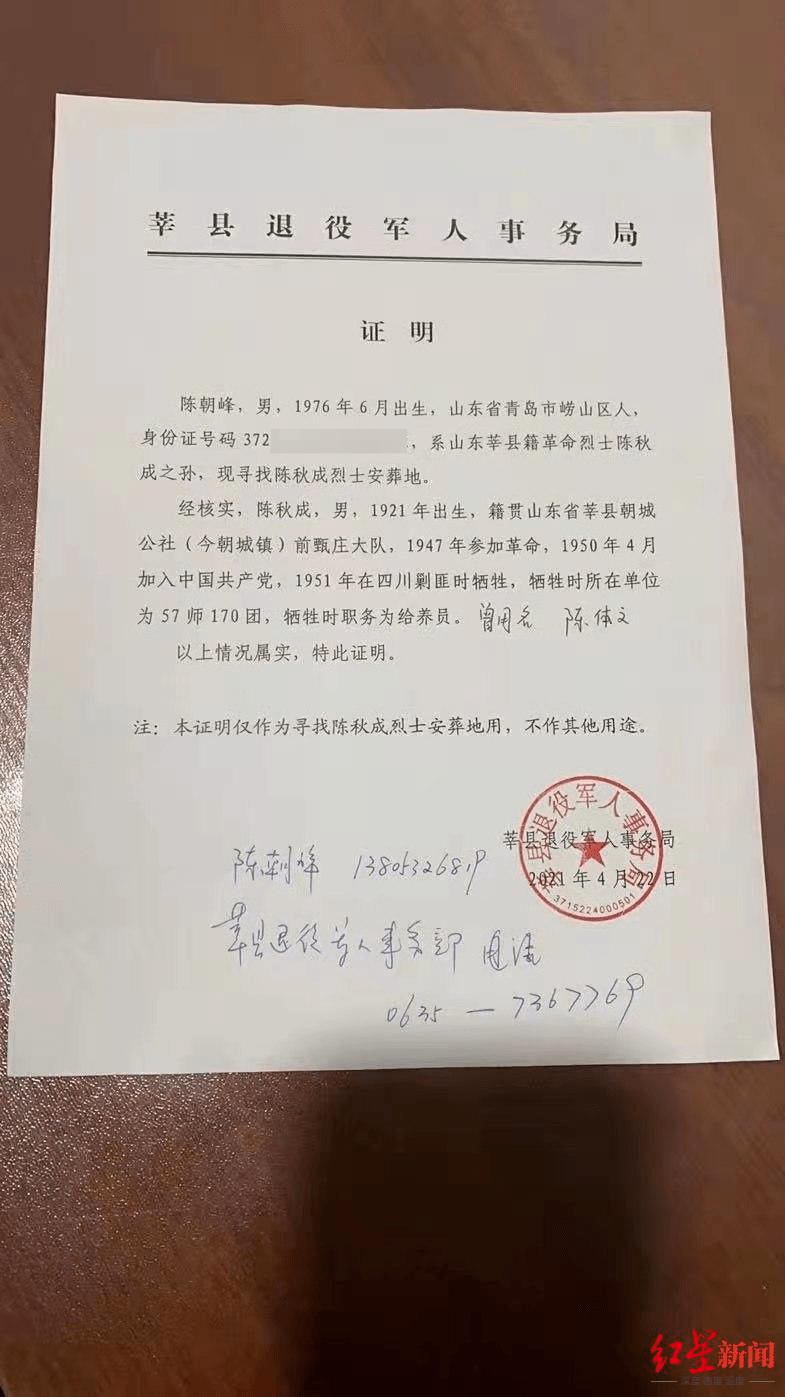 莘县退役军人事务局
证明
陈朝峰，男，1976年6月出生，山东省青岛市崂山区人，
身份证号码372，系山东莘县籍革命烈士陈秋
成之孙，现寻找陈秋成烈士安葬地。
经核实，陈秋成，男，1921年出生，籍贯山东省莘县朝城
公社（今朝城镇）前甄庄大队，1947年参加革命，1950年4月
加入中国共产党，1951年在四川剿匪时牺牲，牺牲时所在单位
为57师170团，牺牲时职务为给养员。曾用名 陈体文
以上情况属实，特此证明。
注：本证明仅作为寻找陈秋成烈士安葬地用，不作其他用途。
莘县退役军人事务局
2021年4月22日
莘县退役军人事务局
3715224000501
陈朝峰 13805326819
莘县退役军人事务部 电话
0635—7367769
红星新闻